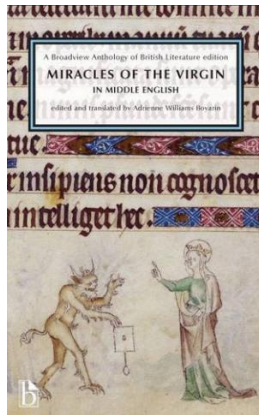 A Broadview Anthology of British Literature edition
MIRACLES OF THE VIRGIN
IN MIDDLE ENGLISH
edited and translated by Adrienne Williams Boyarin
tue.
insipiens non cognoscet
intelliget hec.
b